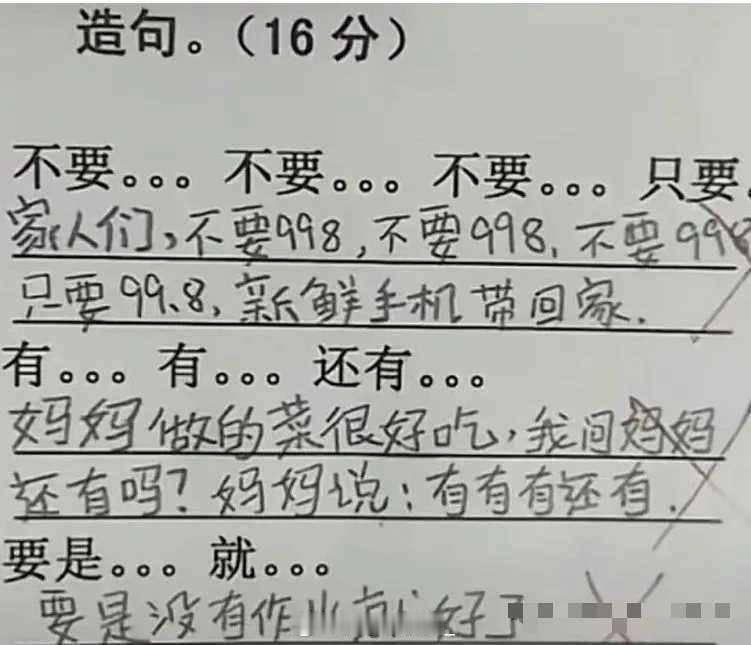 造句。（16 分）
不要。。。不要。。。不要。。。只要。
家人们,不要998,不要998,不要998
只要99.8,新鲜手机带回家.
有。。。有。。。还有。。。
妈妈做的菜很好吃,我问妈妈
还有吗?妈妈说:有有有还有.
要是。。。就。。。
要是没有作业就好了